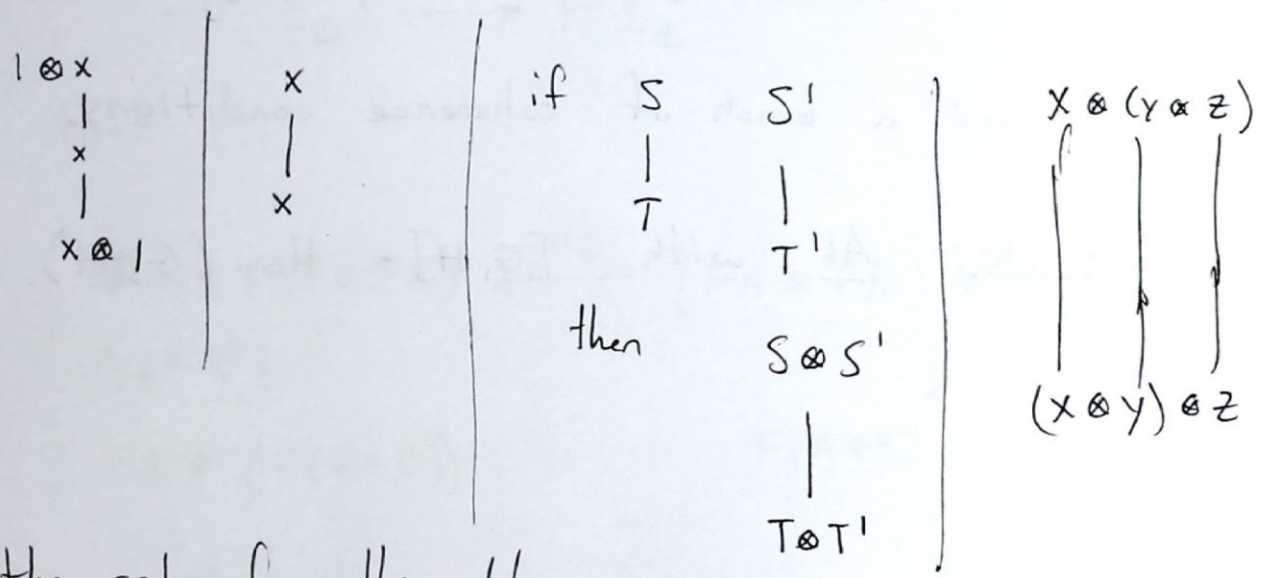 1 ⊗ x
x
x ⊗ 1
x
x
if S S'
T T'
then
S ⊗ S'
T ⊗ T'
X ⊗ (Y ⊗ Z)
(X ⊗ Y) ⊗ Z